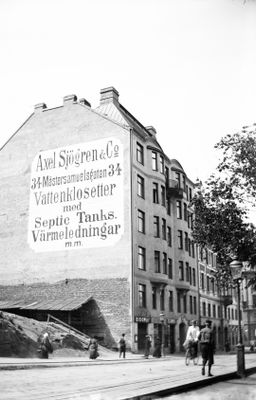 Axel Sjögren & Co
34 Mästersamuelsgatan 34
Vattenklosetter
med
Septic Tanks.
Värmeledningar
m.m.